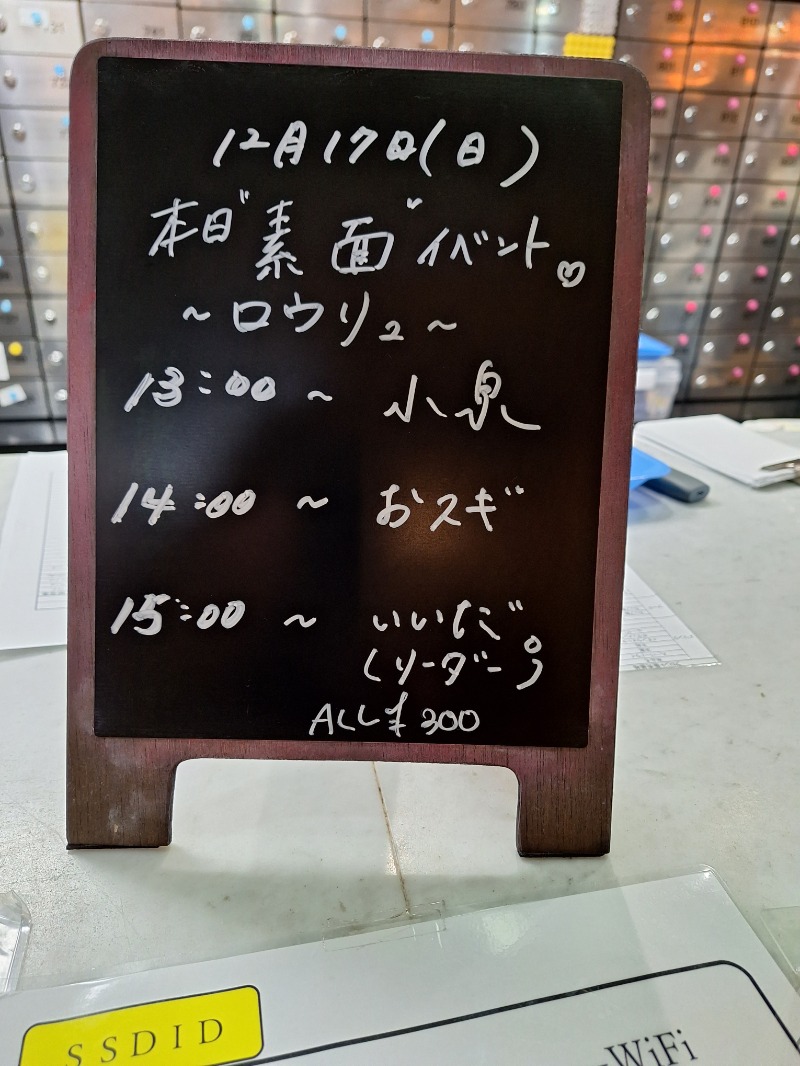 12月17日(日)
本日"素面"イベント♡
~ロウリュ~
13:00 ~ 小泉
14:00 ~ おスギ
15:00 ~ いいだ
(リーダー)
ALL ¥300
SSDID
WiFi